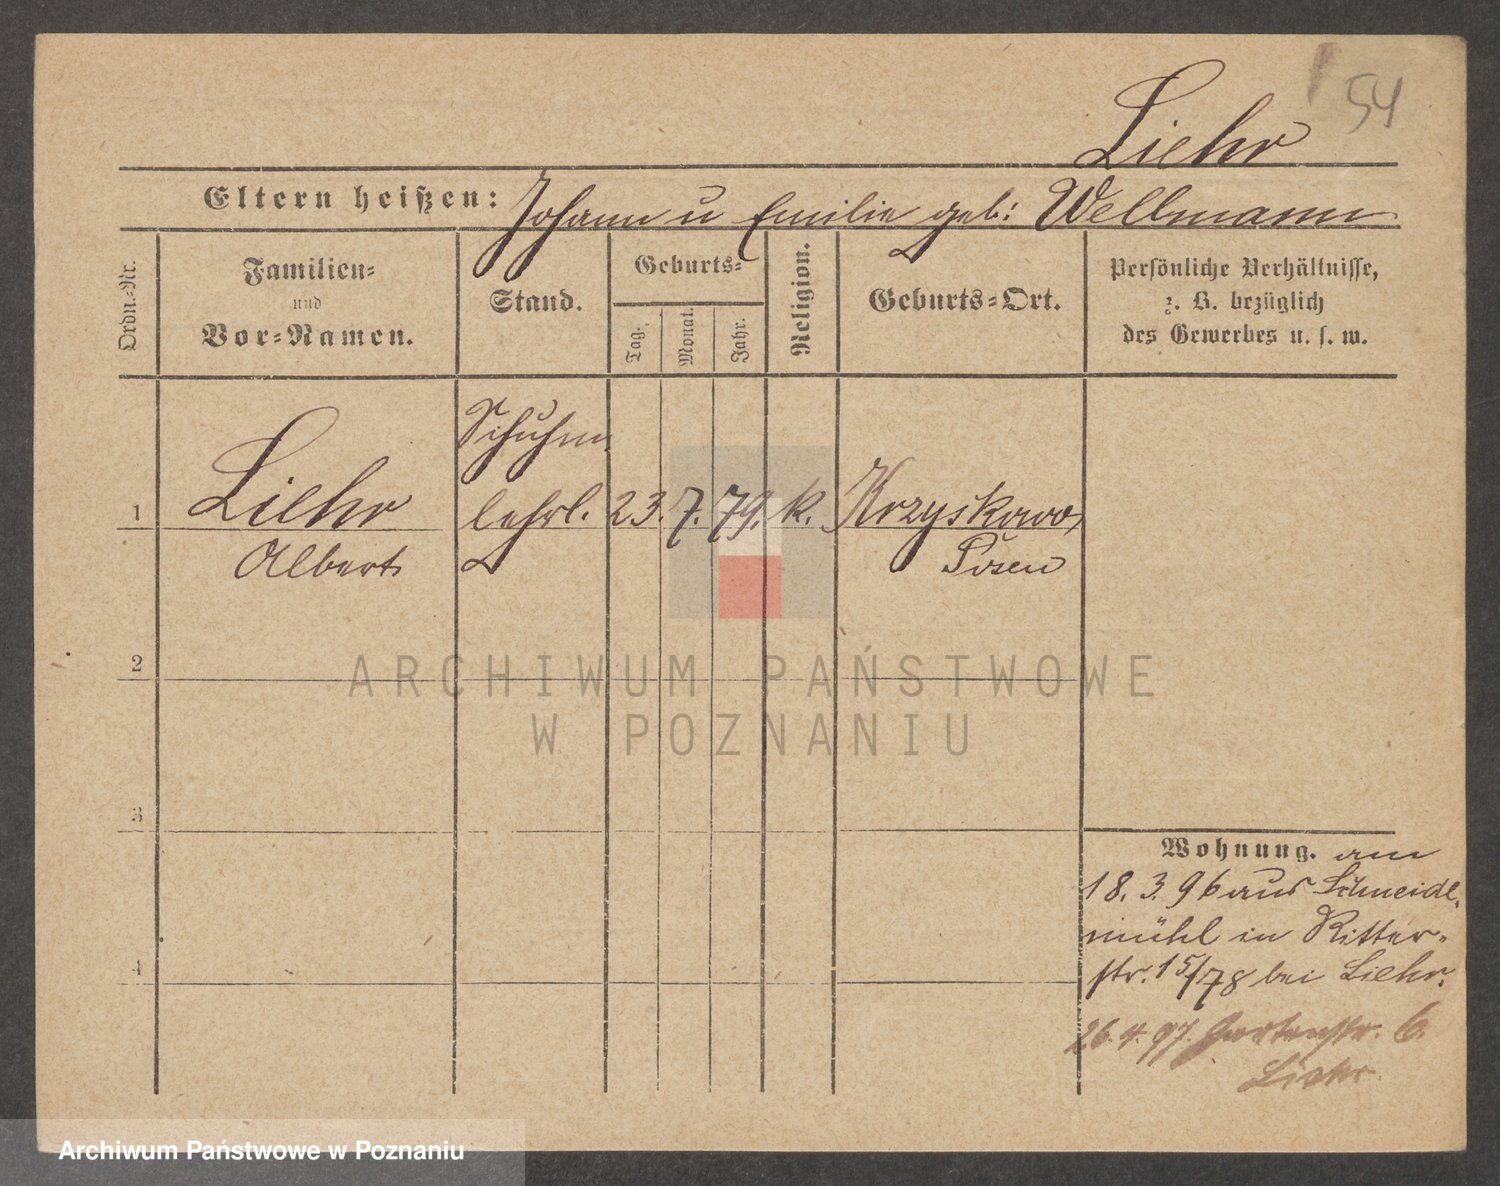 54
Liehr
Eltern heißen: Johann u Emilie geb: Wellmann
Ordn.-Nr.
Familien-
und
Vor-Namen.
Stand.
Geburts-
Tag.
Monat.
Jahr.
Religion.
Geburts-Ort.
Persönliche Verhältnisse,
z. B. bezüglich
des Gewerbes u. s. w.
Schuhm.
1 Liehr lehrl. 23. 7. 79. k. Krzyskowo,
Albert Posen
2
ARCHIWUM PAŃSTWOWE
W POZNANIU
3
Wohnung. am
18. 3. 96 aus Schneide-
mühl in Ritter-
str. 15/78 bei Liehr.
4
26. 4. 97. Gartenstr. 6.
Liehr
Archiwum Państwowe w Poznaniu